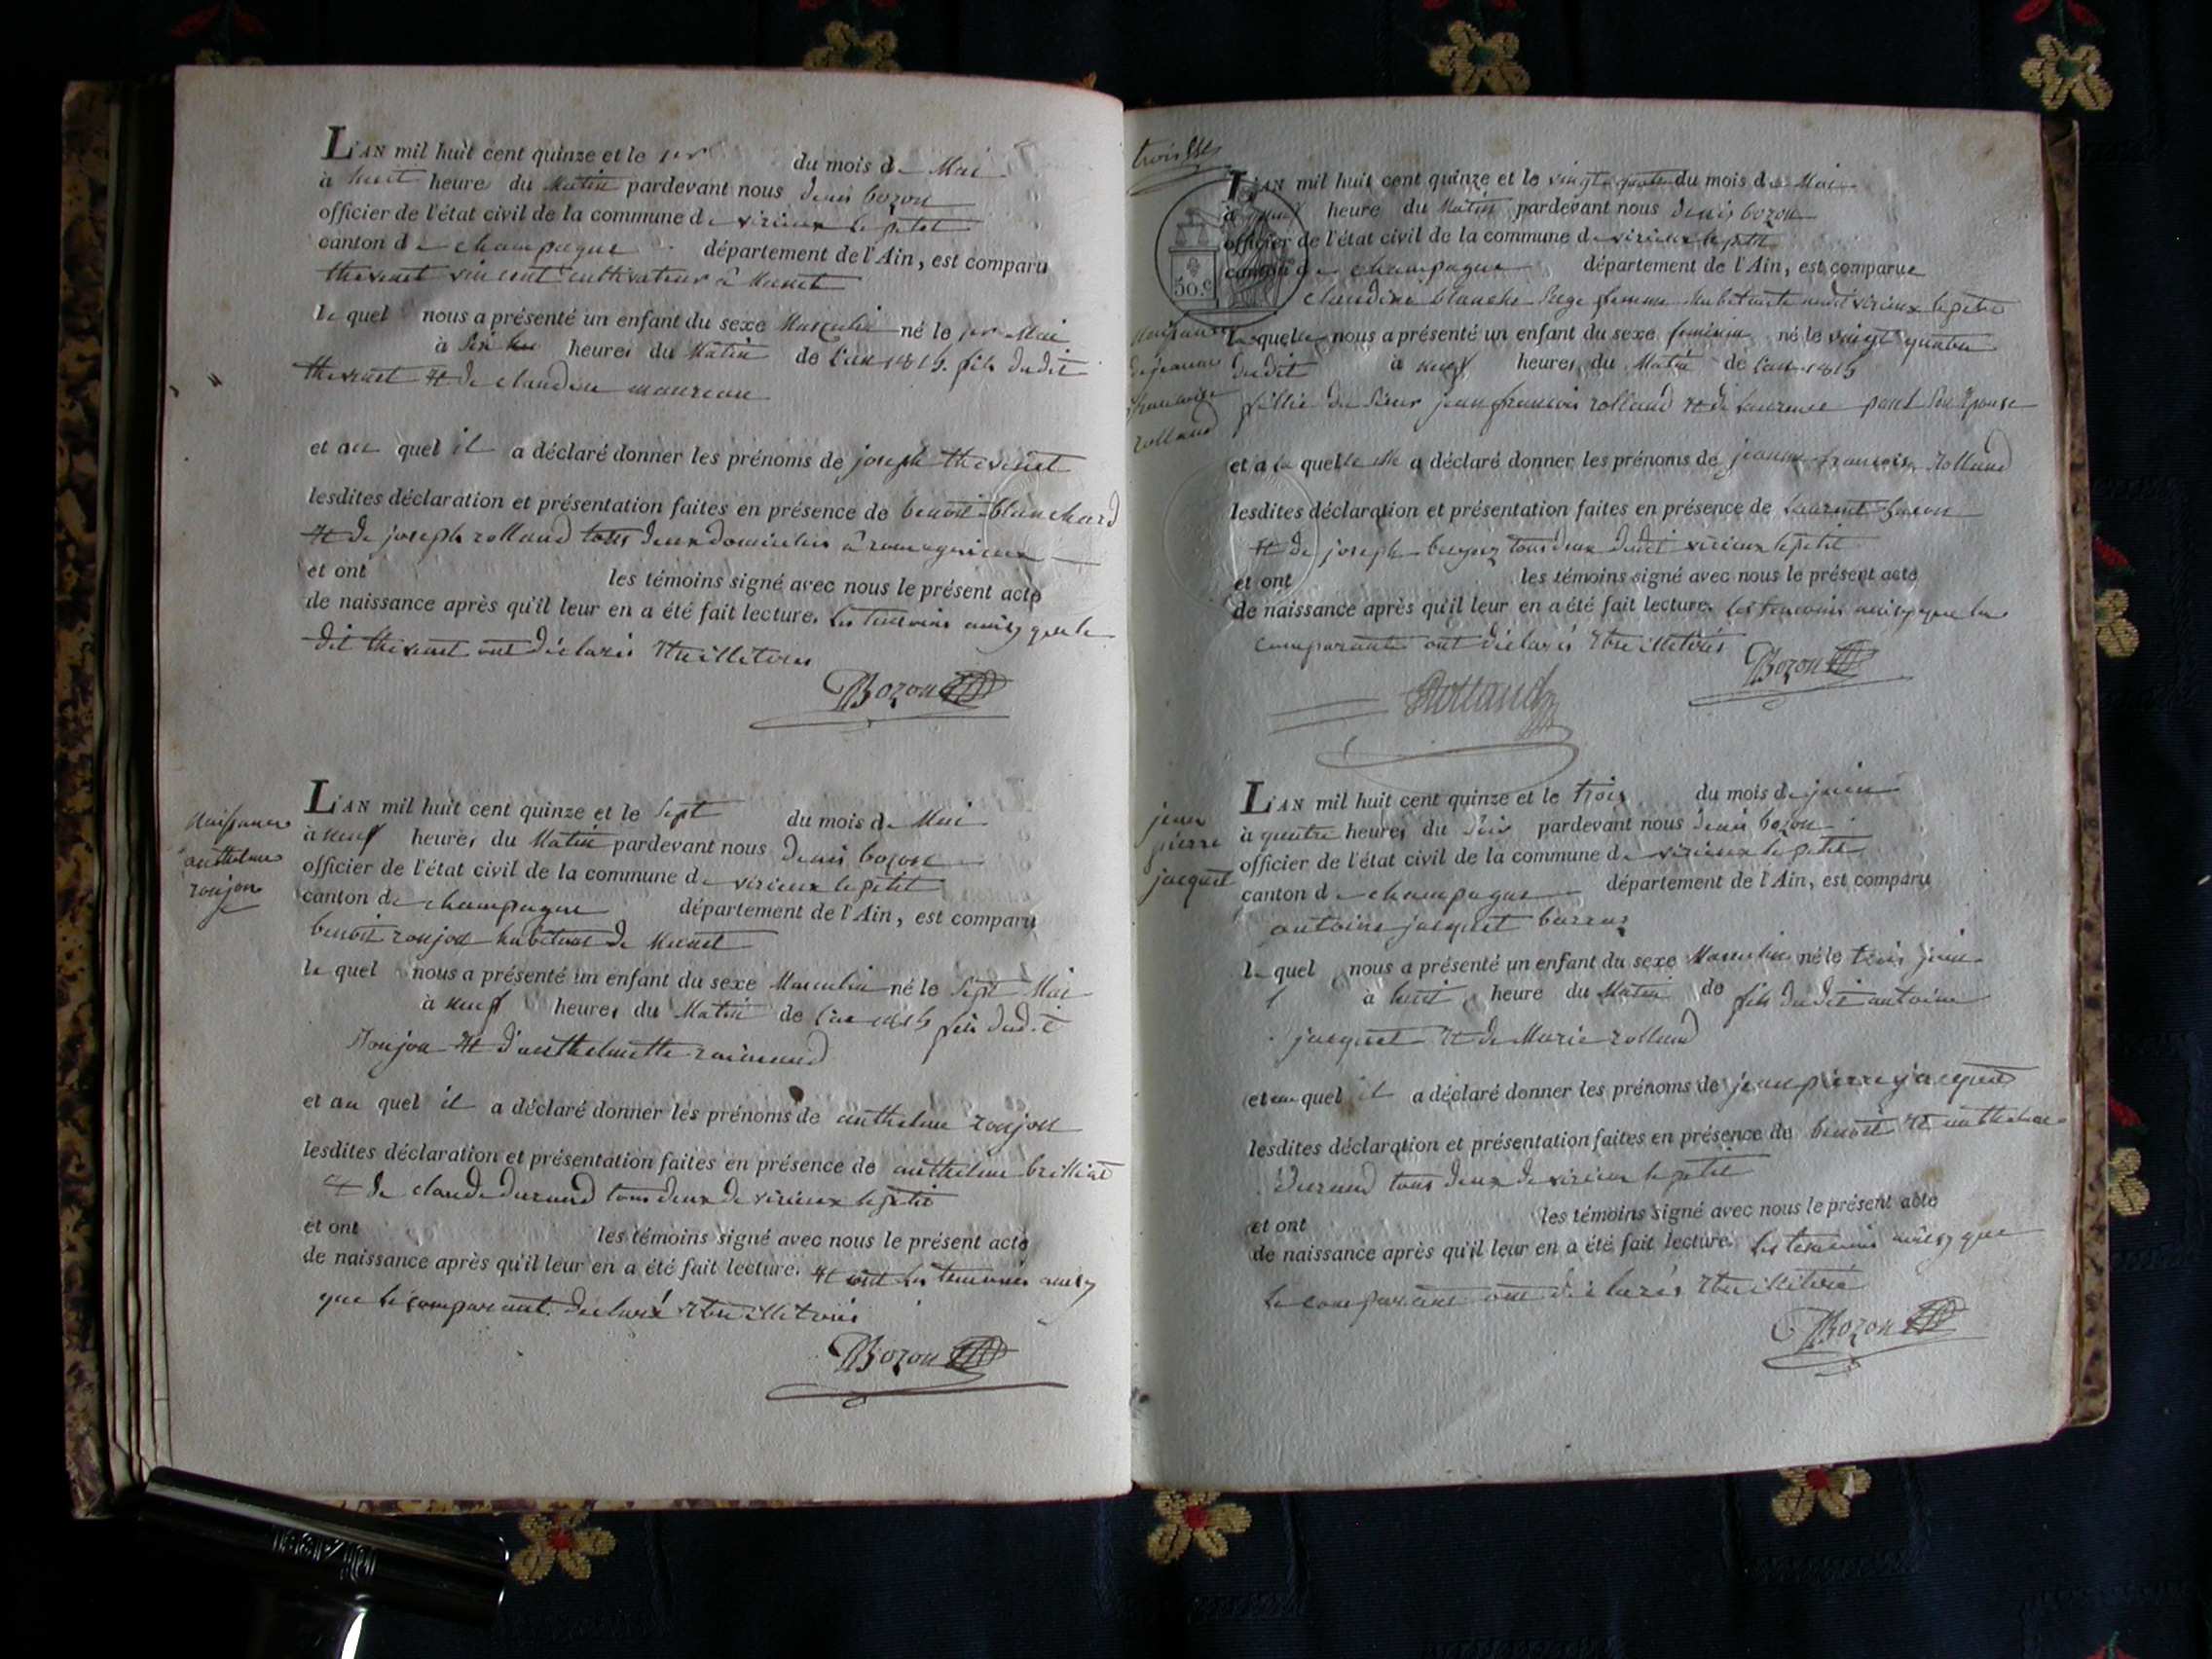 L'AN mil huit cent quinze et le 1er du mois de Mai
à huit heures du Matin pardevant nous denis bozon
officier de l'état civil de la commune de virieux le petit
canton de champagne département de l'Ain, est comparu
thevenet vincent cultivateur à Munet
le quel nous a présenté un enfant du sexe Masculin né le 1er Mai
à six heures du Matin de l'an 1815. fils dudit
thevenet et de claudine
et au quel il a déclaré donner les prénoms de joseph thevenet
lesdites déclaration et présentation faites en présence de benoit blanchard
et de joseph rolland tous deux domiciliés à romagnieux
et ont les témoins signé avec nous le présent acte
de naissance après qu'il leur en a été fait lecture. les temoins ainsy que le
dit thevenet ont déclarés etre illitérés
Bozon
Naissance
anthelme
ronjon
L'AN mil huit cent quinze et le sept du mois de Mai
à neuf heures du Matin pardevant nous denis bozon
officier de l'état civil de la commune de virieux le petit
canton de champagne département de l'Ain, est comparu
benoit ronjon habitant de Munet
le quel nous a présenté un enfant du sexe Masculin né le sept Mai
à neuf heures du Matin de l'an 1815 fils dudit
Ronjon et d'anthelmette raimond
et au quel il a déclaré donner les prénoms de anthelme ronjon
lesdites déclaration et présentation faites en présence de anthelme brilliat
et de claude durand tous deux de virieux le petit
et ont les témoins signé avec nous le présent acte
de naissance après qu'il leur en a été fait lecture. et ont les temoins ainsy
que le comparant declaré etre illitérés
Bozon
30.c
L'AN mil huit cent quinze et le vingt quatre du mois de Mai
à neuf heure du Matin pardevant nous denis bozon
officier de l'état civil de la commune de virieux le petit
canton de champagne département de l'Ain, est comparue
claudine blanche sage femme habitante virieux le petit
Naissance
de jeanne
francoise
rolland
la quelle nous a présenté un enfant du sexe feminin né le vingt quatre
dudit à neuf heures du Matin de l'an 1815
fillie du sieur jean francois rolland et de laurence son epouse
et a la quelle elle a déclaré donner les prénoms de jeanne francoise Rolland
lesdites déclaration et présentation faites en présence de laurent
et de joseph tous deux dudit virieux le petit
et ont les témoins signé avec nous le présent acte
de naissance après qu'il leur en a été fait lecture. les temoins ainsy que la
comparante ont déclarés etre illitérés
Bozon
Rolland
jean
pierre
jacquet
L'AN mil huit cent quinze et le trois du mois de juin
à quatre heures du soir pardevant nous denis bozon
officier de l'état civil de la commune de virieux le petit
canton de champagne département de l'Ain, est comparu
antoine jacquet
le quel nous a présenté un enfant du sexe Masculin né le trois juin
à huit heure du Matin de fils dudit antoine
jacquet et de Marie rolland
et au quel il a déclaré donner les prénoms de jean pierre jacquet
lesdites déclaration et présentation faites en présence de benoit et anthelme
durand tous deux de virieux le petit
et ont les témoins signé avec nous le présent acte
de naissance après qu'il leur en a été fait lecture. les temoins ainsy que
le comparant ont déclarés etre illitéré
Bozon